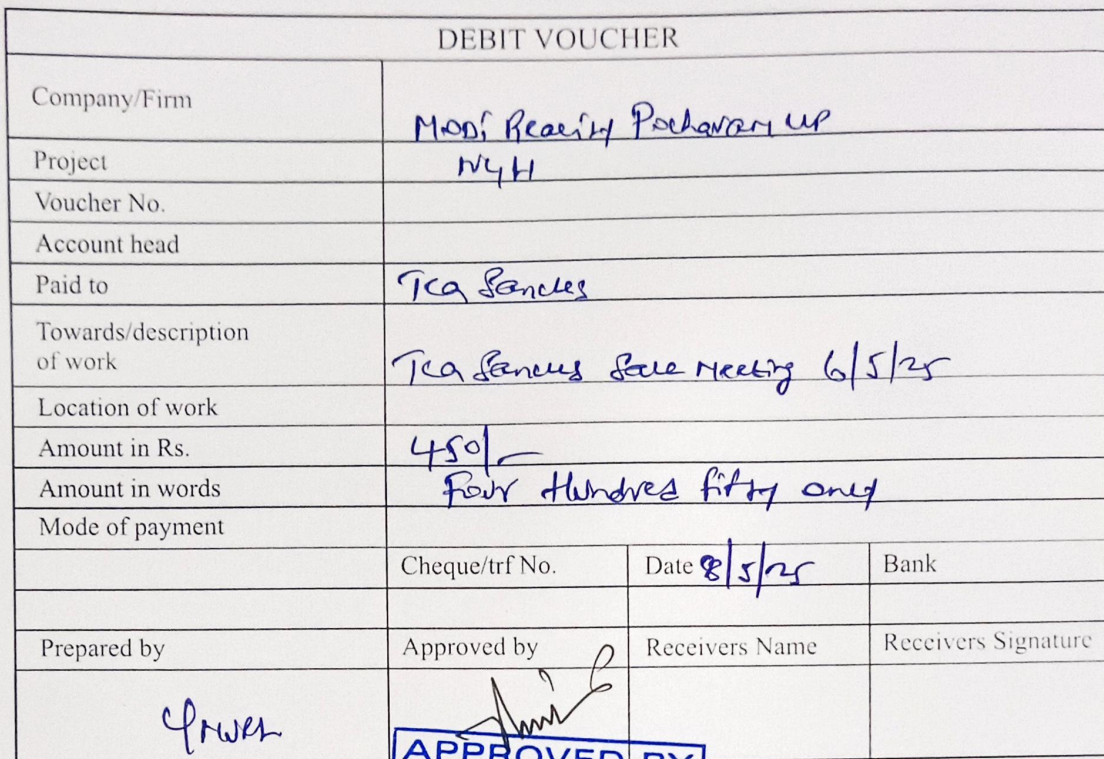 DEBIT VOUCHER
Company/Firm
Modi Reacity Pocharam LLP
Project
NGH
Voucher No.
Account head
Paid to
Tea
Towards/description
of work
Tea Sale Meeting 6/5/25
Location of work
Amount in Rs.
450/-
Amount in words
Four Hundred fifty only
Mode of payment
Cheque/trf No.
Date 8/5/25
Bank
Prepared by
Approved by
Receivers Name
Receivers Signature
APPROVED BY